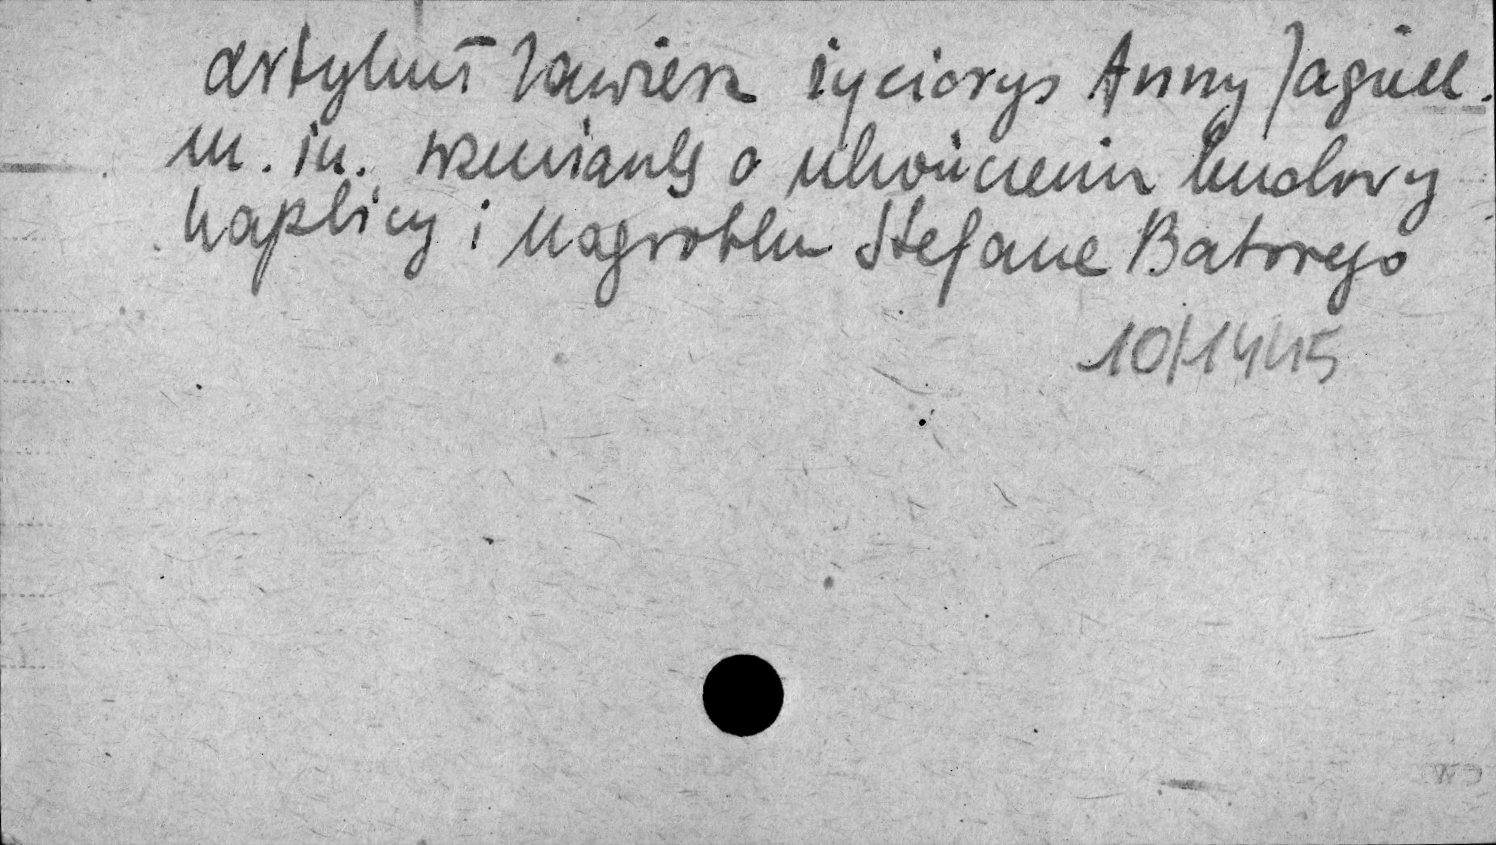 artykuł zawiera życiorys Anny Jagiell.
m. in. wzmiankę o ukończeniu budowy
kaplicy i nagrobku Stefana Batorego
10/14415